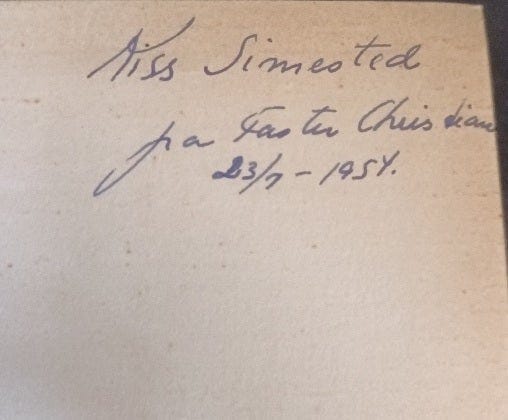 Kiss Simested
fra Faster Christiane
23/7 - 1954.